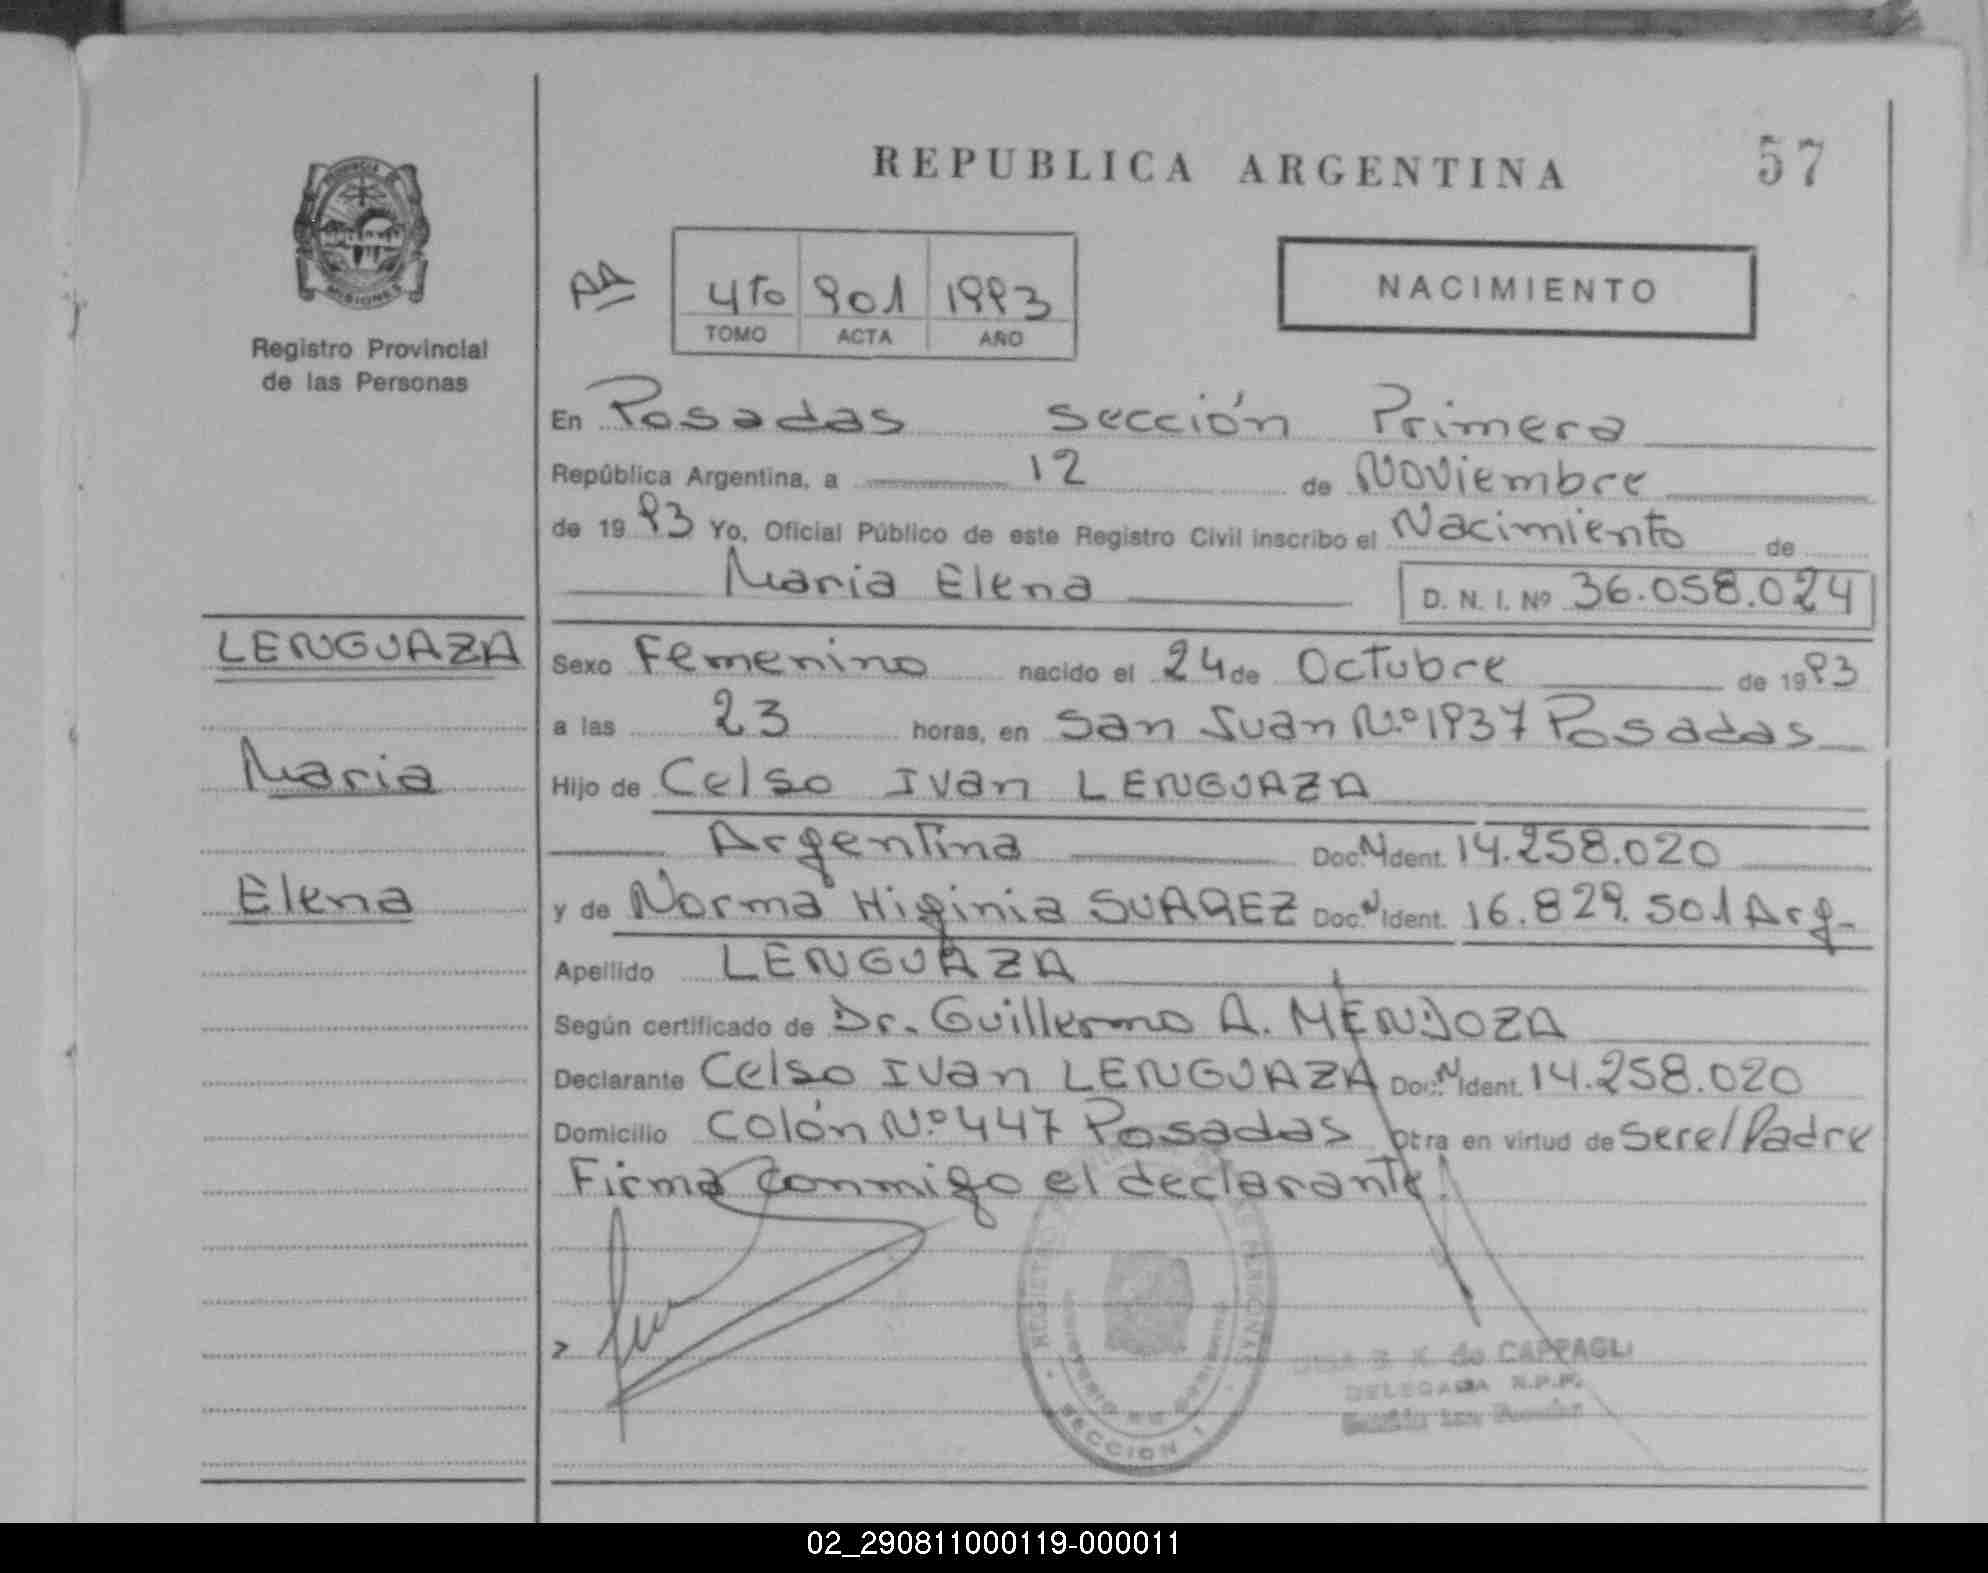 REPUBLICA ARGENTINA
57
PROVINCIA DE
MISIONES
Registro Provincial
de las Personas
AA
4to 901 1993
TOMO ACTA AÑO
NACIMIENTO
En Posadas Sección Primera
República Argentina, a 12 de Noviembre
de 1993 Yo, Oficial Público de este Registro Civil inscribo el Nacimiento de
Maria Elena D. N. I. Nº 36.058.024
LENGUAZA
Maria
Elena
Sexo Femenino nacido el 24 de Octubre de 1993
a las 23 horas, en San Juan N.º 1937 Posadas
Hijo de Celso Ivan LENGUAZA
Argentina Doc. N Ident. 14.258.020
y de Norma Higinia SUAREZ Doc. N Ident. 16.829.501 Arg.
Apellido LENGUAZA
Según certificado de Dr. Guillermo A. MENDOZA
Declarante Celso Ivan LENGUAZA Doc. N Ident. 14.258.020
Domicilio Colón N.º 447 Posadas obra en virtud de ser el Padre
Firma conmigo el declarante
REGISTRO PERSONAS
SECCION 1
de CAPPAGLI
DELEGADA R.P.P.
02_290811000119-000011